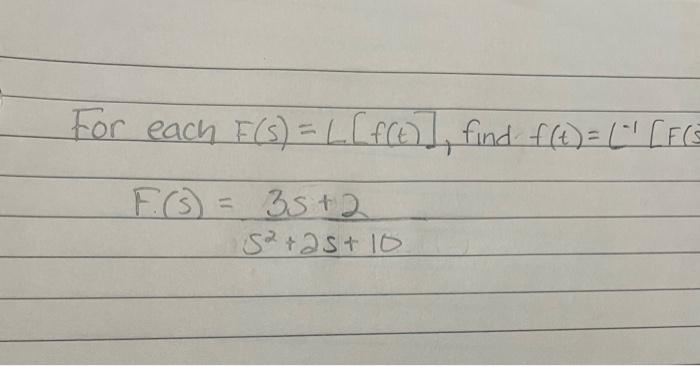 For each F(s) = L[f(t)], find f(t) = L⁻¹ [F(s
F(s) = 3s+2
s²+2s+10